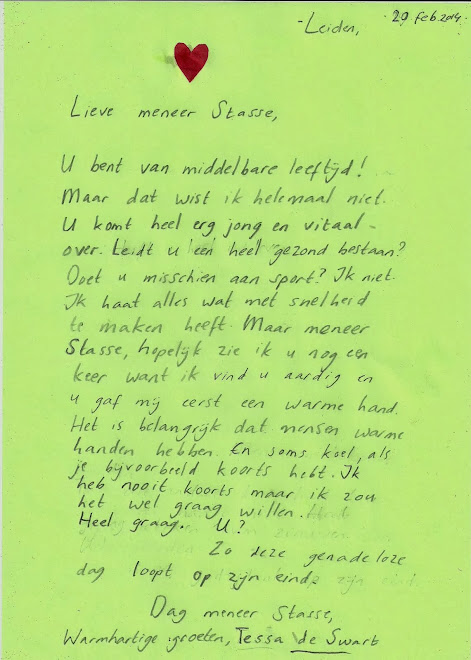 -Leiden, 20 feb 2014.
Lieve meneer Stasse,
U bent van middelbare leeftijd!
Maar dat wist ik helemaal niet.
U komt heel erg jong en vitaal-
over. Leidt u een heel gezond bestaan?
Doet u misschien aan sport? Ik niet.
Ik haat alles wat met snelheid
te maken heeft. Maar meneer
Stasse, hopelijk zie ik u nog een
keer want ik vind u aardig en
u gaf mij eerst een warme hand.
Het is belangrijk dat mensen warme
handen hebben. En soms koel, als
je bijvoorbeeld koorts hebt. Ik
heb nooit koorts maar ik zou
het wel graag willen.
Heel graag. U?
Zo deze genadeloze
dag loopt op zijn einde
Dag meneer Stasse,
Warmhartige groeten, Tessa de Swart